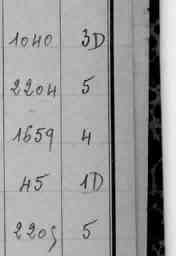 1040 3D
2204 5
1659 4
45 1D
2205 5